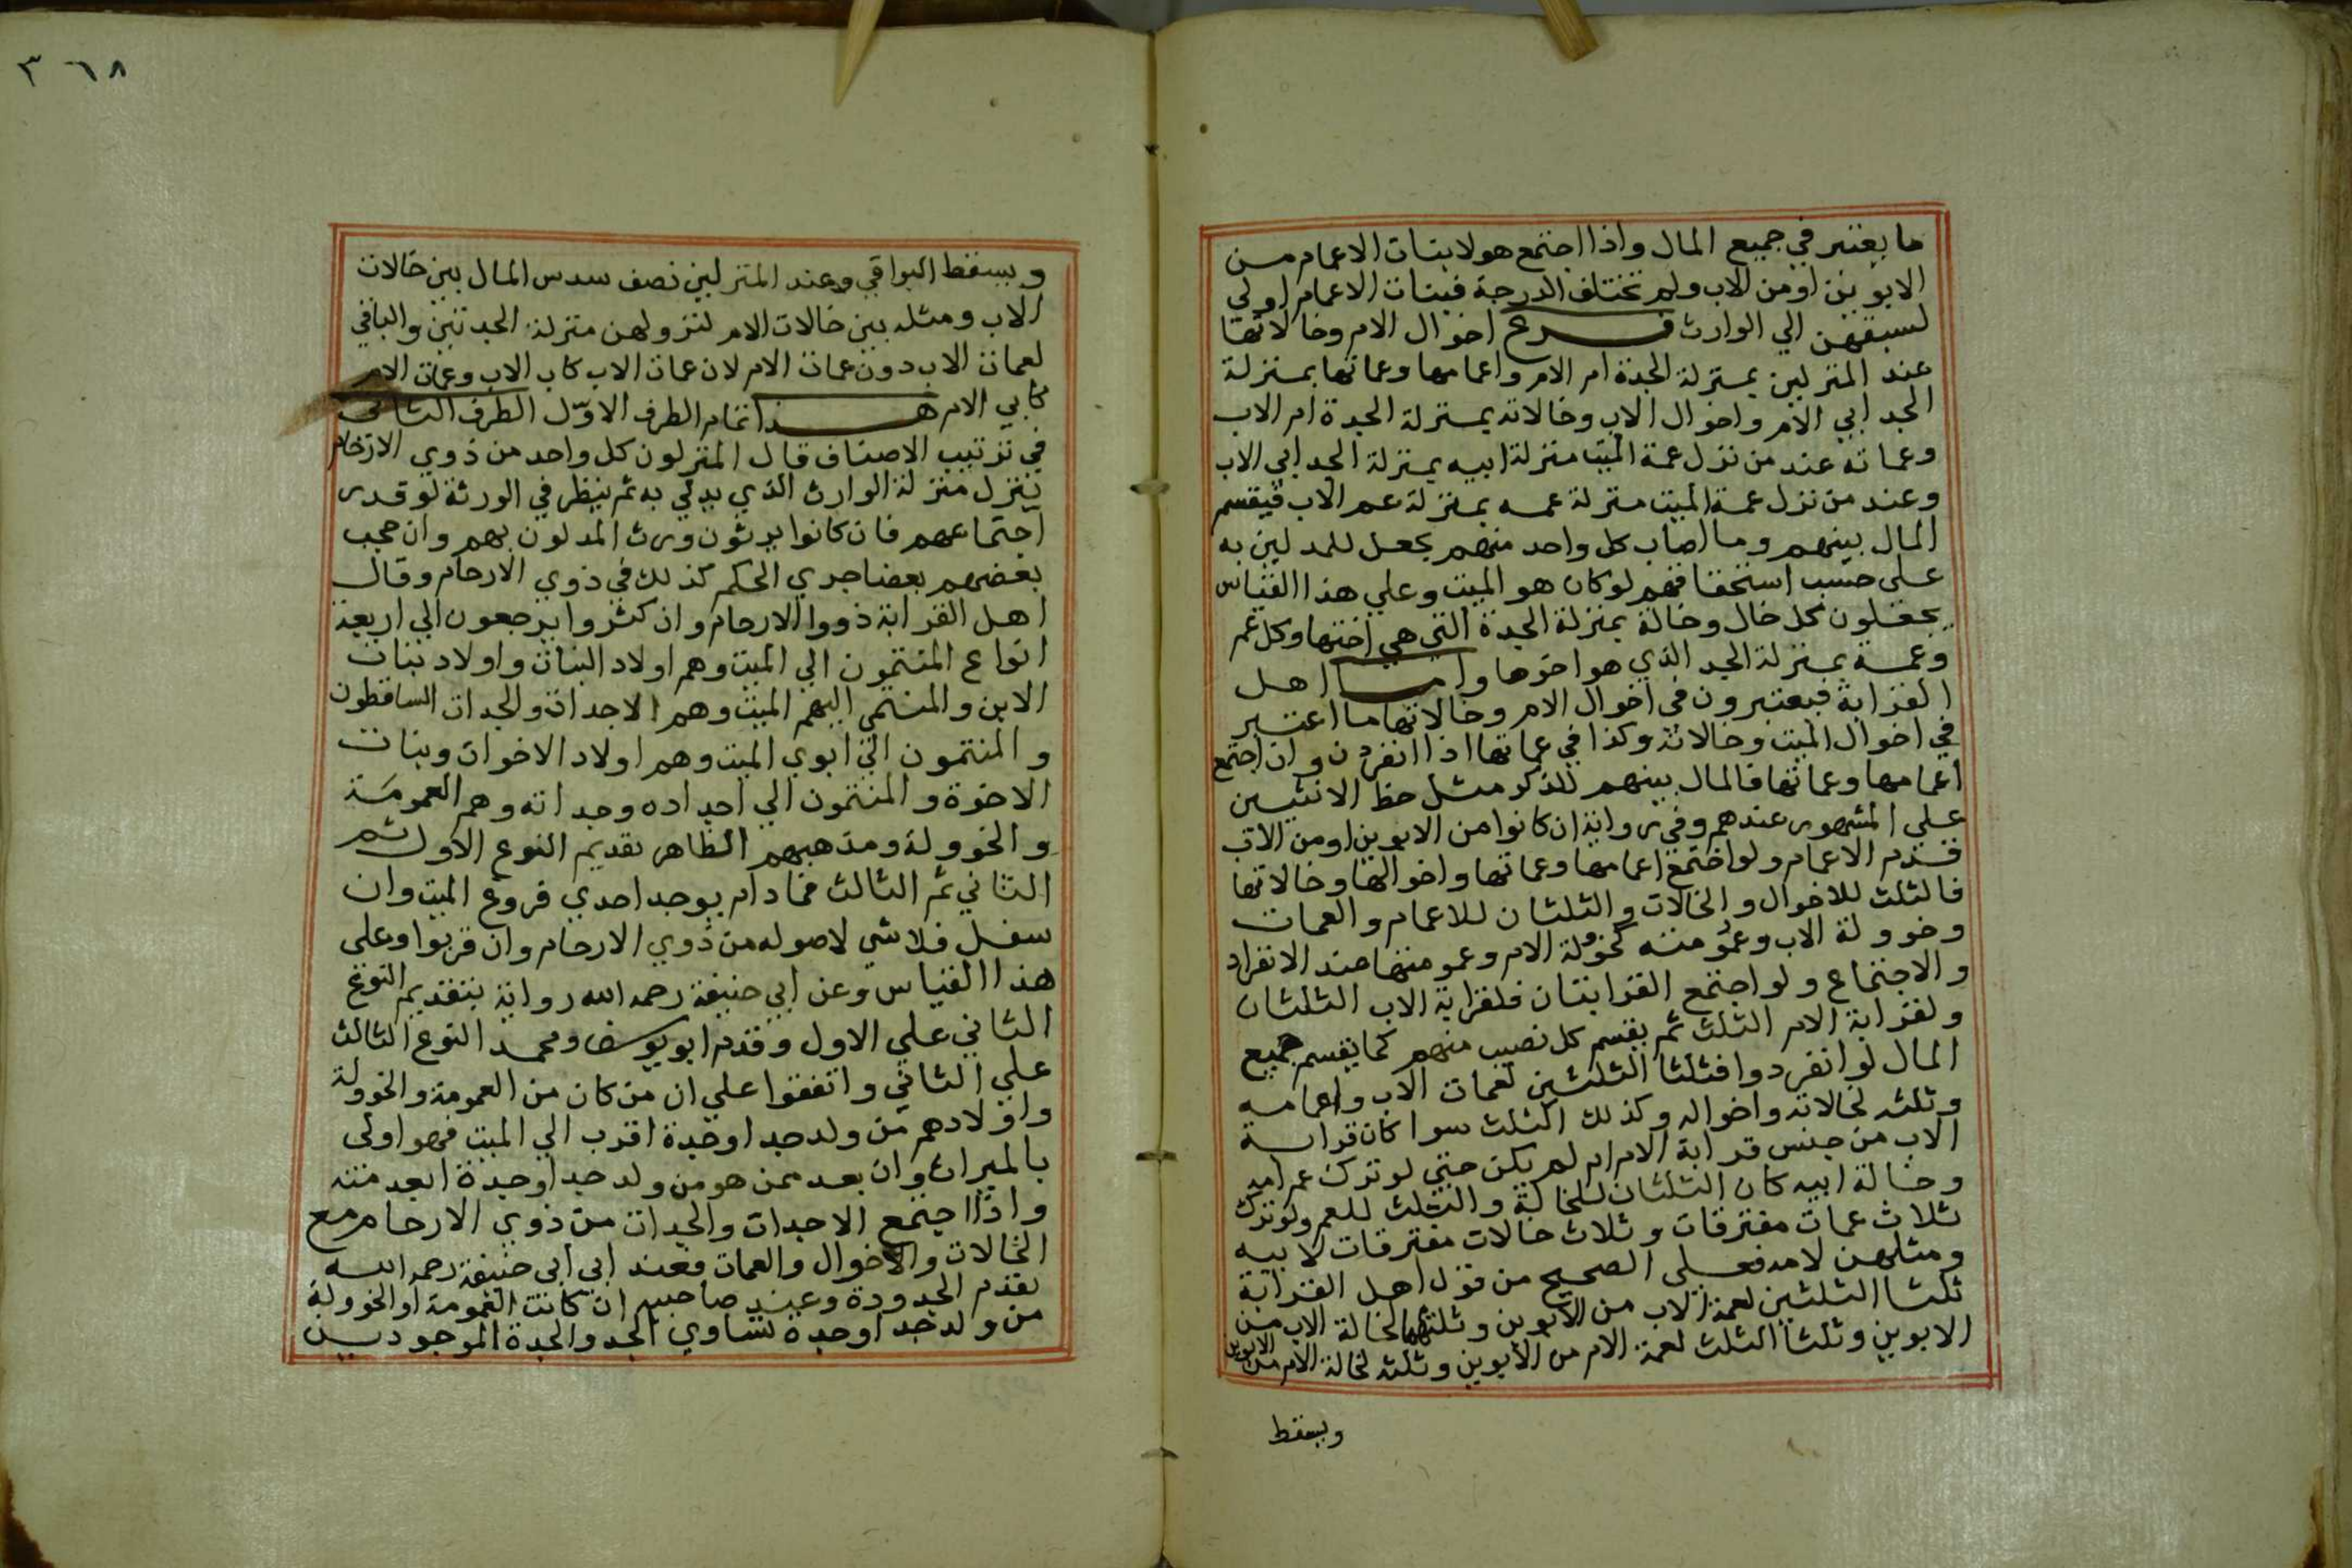 ما يعتبر في جميع المال واذا اجتمع هولا بنات الاعمام من
الابوين او من الاب ولم تختلف الدرجة فبنات الاعمام اولي
لسبقهن الي الوارث فرع اخوال الام وخالاتها
عند المنزلين بمنزلة الجدة ام الام واعمامها وعماتها بمنزلة
الجد ابي الام واخوال الاب وخالاته بمنزلة الجدة ام الاب
وعماته عند من نزل عمة الميت منزلة ابيه بمنزلة الجد ابي الاب
وعند من نزل عمة الميت منزلة عمه بمنزلة عم الاب فيقسم
المال بينهم وما اصاب كل واحد منهم يجعل للمدلين به
علي حسب استحقاقهم لو كان هو الميت وعلي هذا القياس
يجعلون كل خال وخالة بمنزلة الجدة التي هي اختها وكل عم
وعمة بمنزلة الجد الذي هو اخوها واما اهل
القرابة فيعتبرون في اخوال الام وخالاتها ما اعتبر
في اخوال الميت وخالاته وكذا في عماتها اذا انفردن وان اجتمع
اعمامها وعماتها فالمال بينهم للذكر مثل حظ الانثيين
علي المشهور عندهم وفي رواية ان كانوا من الابوين او من الاب
قدم الاعمام ولو اجتمع اعمامها وعماتها واخوالها وخالاتها
فالثلث للاخوال والخالات والثلثان للاعمام والعمات
وخوولة الاب وعمومته كخوولة الام وعمومتها عند الانفراد
والاجتماع ولو اجتمع القرابتان فلقرابة الاب الثلثان
ولقرابة الام الثلث ثم يقسم كل نصيب منهم كما يقسم جميع
المال لو انفردوا فثلثا الثلثين لعمات الاب واعمامه
وثلثه لخالاته واخواله وكذلك الثلث سوا كان قرابة
الاب من جنس قرابة الام ام لم يكن حتي لو ترك عم امه
وخالة ابيه كان الثلثان للخالة والثلث للعم ولو ترك
ثلاث عمات مفترقات وثلاث خالات مفترقات لابيه
ومثلهن لامه فعلي الصحيح من قول اهل القرابة
ثلثا الثلثين لعمة الاب من الابوين وثلثهما لخالة الاب من
الابوين وثلثا الثلث لعمة الام من الابوين وثلثه لخالة الام من الابوين
ويسقط
٣٦٨
ويسقط البواقي وعند المنزلين نصف سدس المال بين خالات
الاب ومثله بين خالات الام لنزولهن منزلة الجدتين والباقي
لعمات الاب دون عمات الام لان عمات الاب كاب الاب وعمات الام
كابي الام هذا تمام الطرف الاول الطرف الثاني
في ترتيب الاصناف قال المنزلون كل واحد من ذوي الارحام
ينزل منزلة الوارث الذي يدلي به ثم ينظر في الورثة لو قدر
اجتماعهم فان كانوا يرثون ورث المدلون بهم وان حجب
بعضهم بعضا جري الحكم كذلك في ذوي الارحام وقال
اهل القرابة ذووا الارحام وان كثروا يرجعون الي اربعة
انواع المنتمون الي الميت وهم اولاد البنات واولاد بنات
الابن والمنتمي اليهم الميت وهم الاجداد والجدات الساقطون
والمنتمون الي ابوي الميت وهم اولاد الاخوات وبنات
الاخوة والمنتمون الي اجداده وجداته وهم العمومة
والخوولة ومذهبهم الظاهر تقديم النوع الاول ثم
الثاني ثم الثالث فما دام يوجد احدي فروع الميت وان
سفل فلا شي لاصوله من ذوي الارحام وان قربوا وعلي
هذا القياس وعن ابي حنيفة رحمه الله رواية بتقديم النوع
الثاني علي الاول وقدم ابو يوسف ومحمد النوع الثالث
علي الثاني واتفقوا علي ان من كان من العمومة والخوولة
واولادهم من ولد جد او جدة اقرب الي الميت فهو اولي
بالميراث وان بعد ممن هو من ولد جد او جدة ابعد منه
واذا اجتمع الاجداد والجدات من ذوي الارحام مع
الخالات والاخوال والعمات فعند ابي ابي حنيفة رحمه الله
تقدم الجدودة وعند صاحبيه ان كانت العمومة او الخوولة
من ولد جد او جدة تساوي الجد والجدة الموجودين